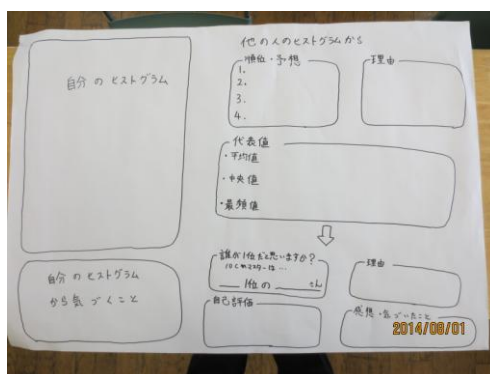 自分のヒストグラム
自分のヒストグラム
から気づくこと
他の人のヒストグラムから
順位・予想
1.
2.
3.
4.
理由
代表値
・平均値
・中央値
・最頻値
誰が1位だと思いますか?
1位の さん
理由
自己評価
感想・気づいたこと
2014/08/01